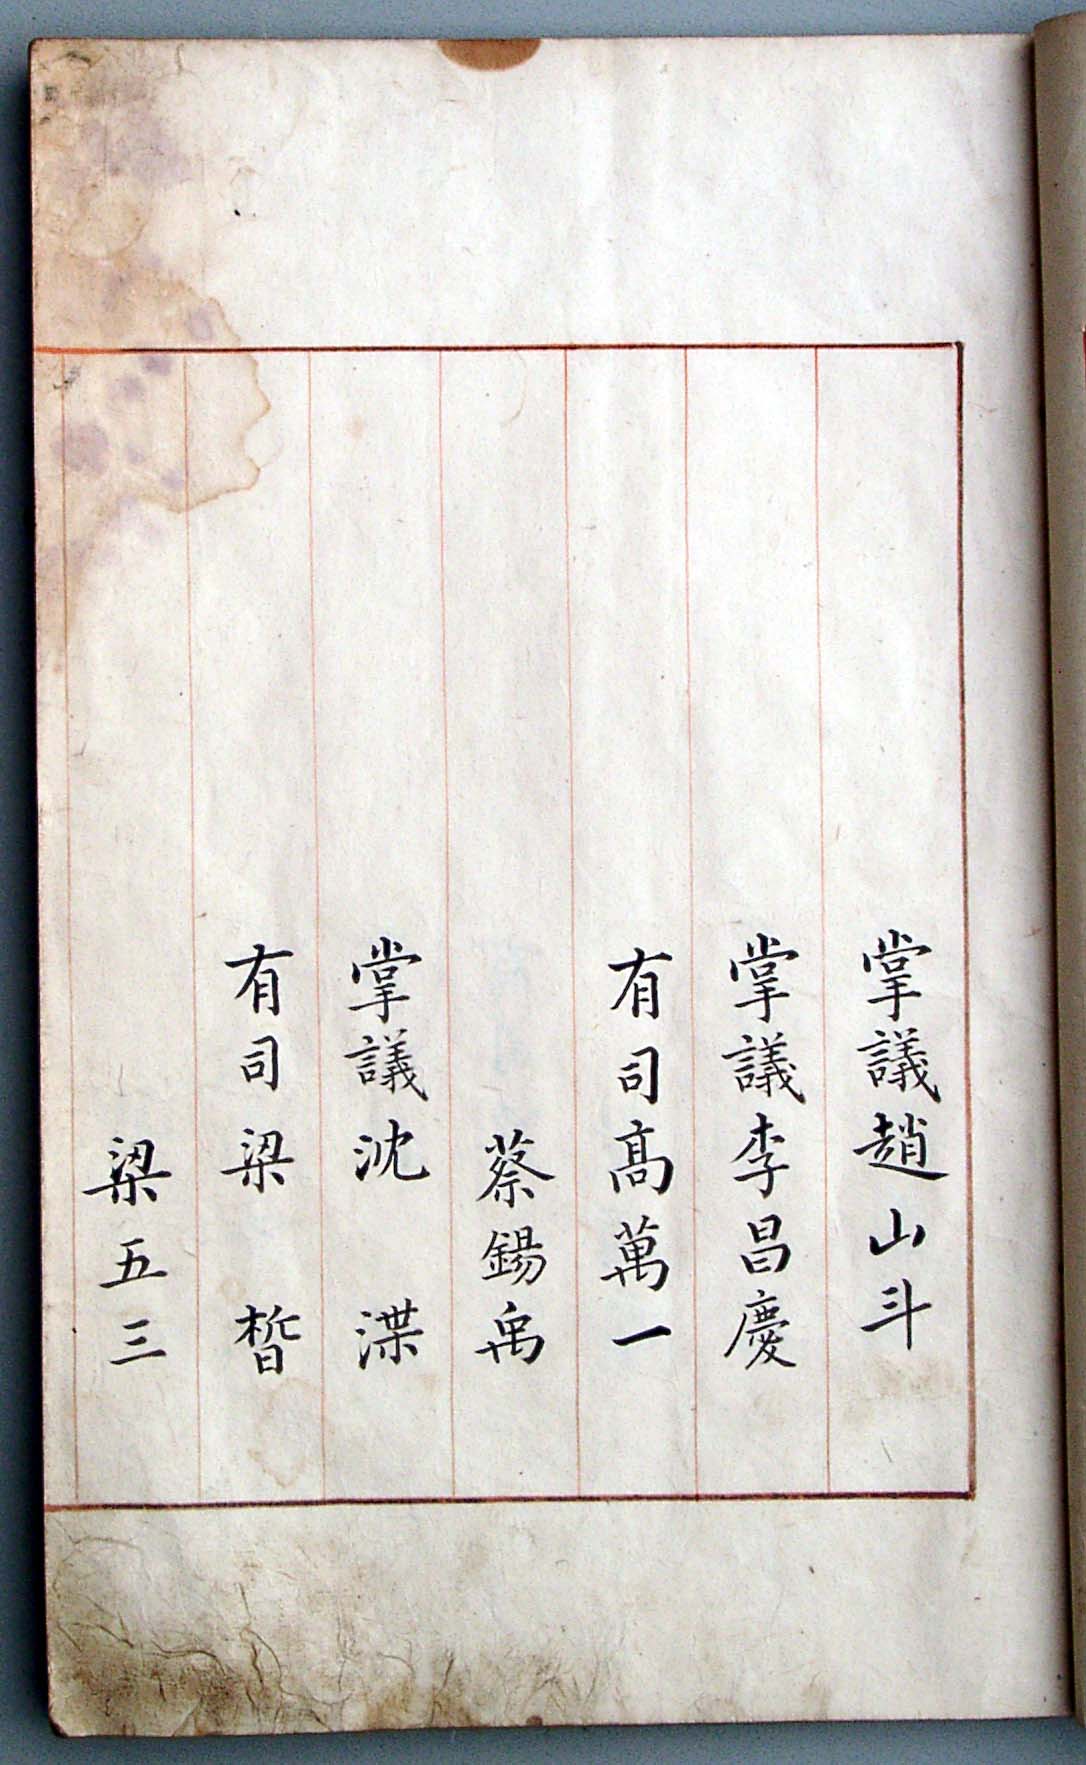 掌議趙山斗
掌議李昌慶
有司髙萬一
蔡錫禹
掌議沈渫
有司梁晳
梁五三